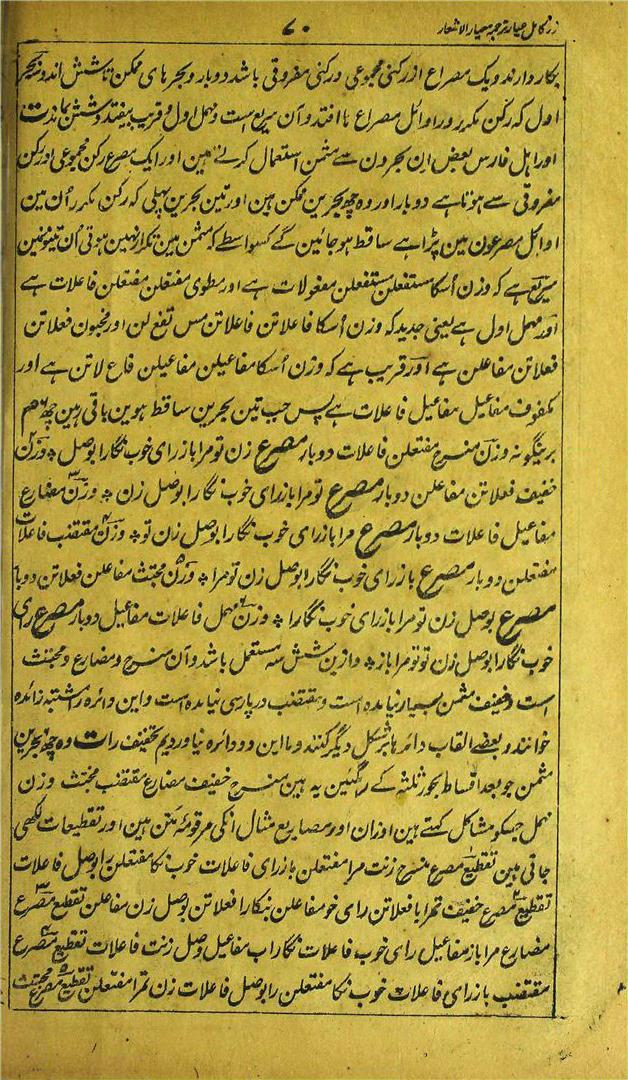 زر کامل عیار ترجمہ معیار الاشعار
۷۰
بکار دارند و یک مصراع از رکنی مجموعی و رکنی مفروقی باشد دو بار و بحر های ممکن تا شش اند و سہ بحر
اول کہ رکن مکرر در اوائل مصراع ها افتد و آن سریع است و مہمل اول و قریب بیفتد و شش بماند ت
اور اہل فارس بعض ان بحرون سے مثمن استعمال کرتے ہین اور ایک مصرع رکن مجموعی اور رکن
مفروقی سے ہوتا ہے دوبار اور وہ چھ بحرین ممکن ہین اور تین بحرین پہلی کہ رکن مکرر اُن مین
اوائل مصرعون مین پڑا ہے ساقط ہو جائین گے کسواسطے کہ مثمن مین تکرار نہین ہوتی اُن تینونمین
سریع ہے کہ وزن اُسکا مستفعلن مستفعلن مفعولات ہے اور مطوی مفتعلن مفتعلن فاعلات ہے
اور مہمل اول ہے یعنی جدید کہ وزن اُسکا فاعلاتن فاعلاتن مس تفع لن اور مخبون فعلاتن
فعلاتن مفاعلن ہے اور قریب ہے کہ وزن اُسکا مفاعیلن مفاعیلن فاع لاتن ہے اور
مکفوف مفاعیل مفاعیل فاعلات ہے پس جب تین بحرین ساقط ہوین باقی رہین چھ م
برینگونہ وزن منسرح مفتعلن فاعلات دوبار مصرع زن تو مرا باز رای خوب نگارا بوصل ٭ وزن
خفیف فعلاتن مفاعلن دوبار مصرع تو مرا باز رای خوب نگارا بوصل زن ٭ وزن مضارع
مفاعیل فاعلات دوبار مصرع مرا باز رای خوب نگارا بوصل زن تو ٭ وزن مقتضب فاعلات
مفتعلن دوبار مصرع باز رای خوب نگارا بوصل زن تو مرا ٭ وزن مجتث مفاعلن فعلاتن دوبار
مصرع بوصل زن تو مرا باز رای خوب نگارا ٭ وزن مہمل فاعلات مفاعیل دوبار مصرع رای
خوب نگارا بوصل زن تو مرا باز ٭ و ازین شش سہ مستعمل باشد و آن منسرح و مضارع و مجتث
است و خفیف مثمن بسیار نیامده است و مقتضب در پارسی نیامده است و این دائره را مشتبہ زائده
خوانند و بعضے القاب دائرها بر شکل دیگر کنند و ما این دو دائره نیاوردیم تخفیف را ت وہ چھ بحرین
مثمن جو بعد اقساط بحور ثلثہ کے رہگئین یہ ہین منسرح خفیف مضارع مقتضب مجتث وزن
مہمل جسکو مشاکل کہتے ہین اوزان اور مصاریع مثال انکی مرقومۂ متن ہین اور تقطیعات لکھی
جاتی ہین تقطیع مصرع منسرح زنت مرا مفتعلن باز رای فاعلات خوب نکا مفتعلن را بوصل فاعلات
تقطیع مصرع خفیف تمرا با فعلاتن رای خو مفاعلن بنکارا فعلاتن بوصل زن مفاعلن تقطیع مصرع
مضارع مرا باز مفاعیل رای خوب فاعلات نگاراب مفاعیل وصل زنت فاعلات تقطیع مصرع
مقتضب باز رای فاعلات خوب نکا مفتعلن را بوصل فاعلات زن تمرا مفتعلن تقطیع مصرع مجتث